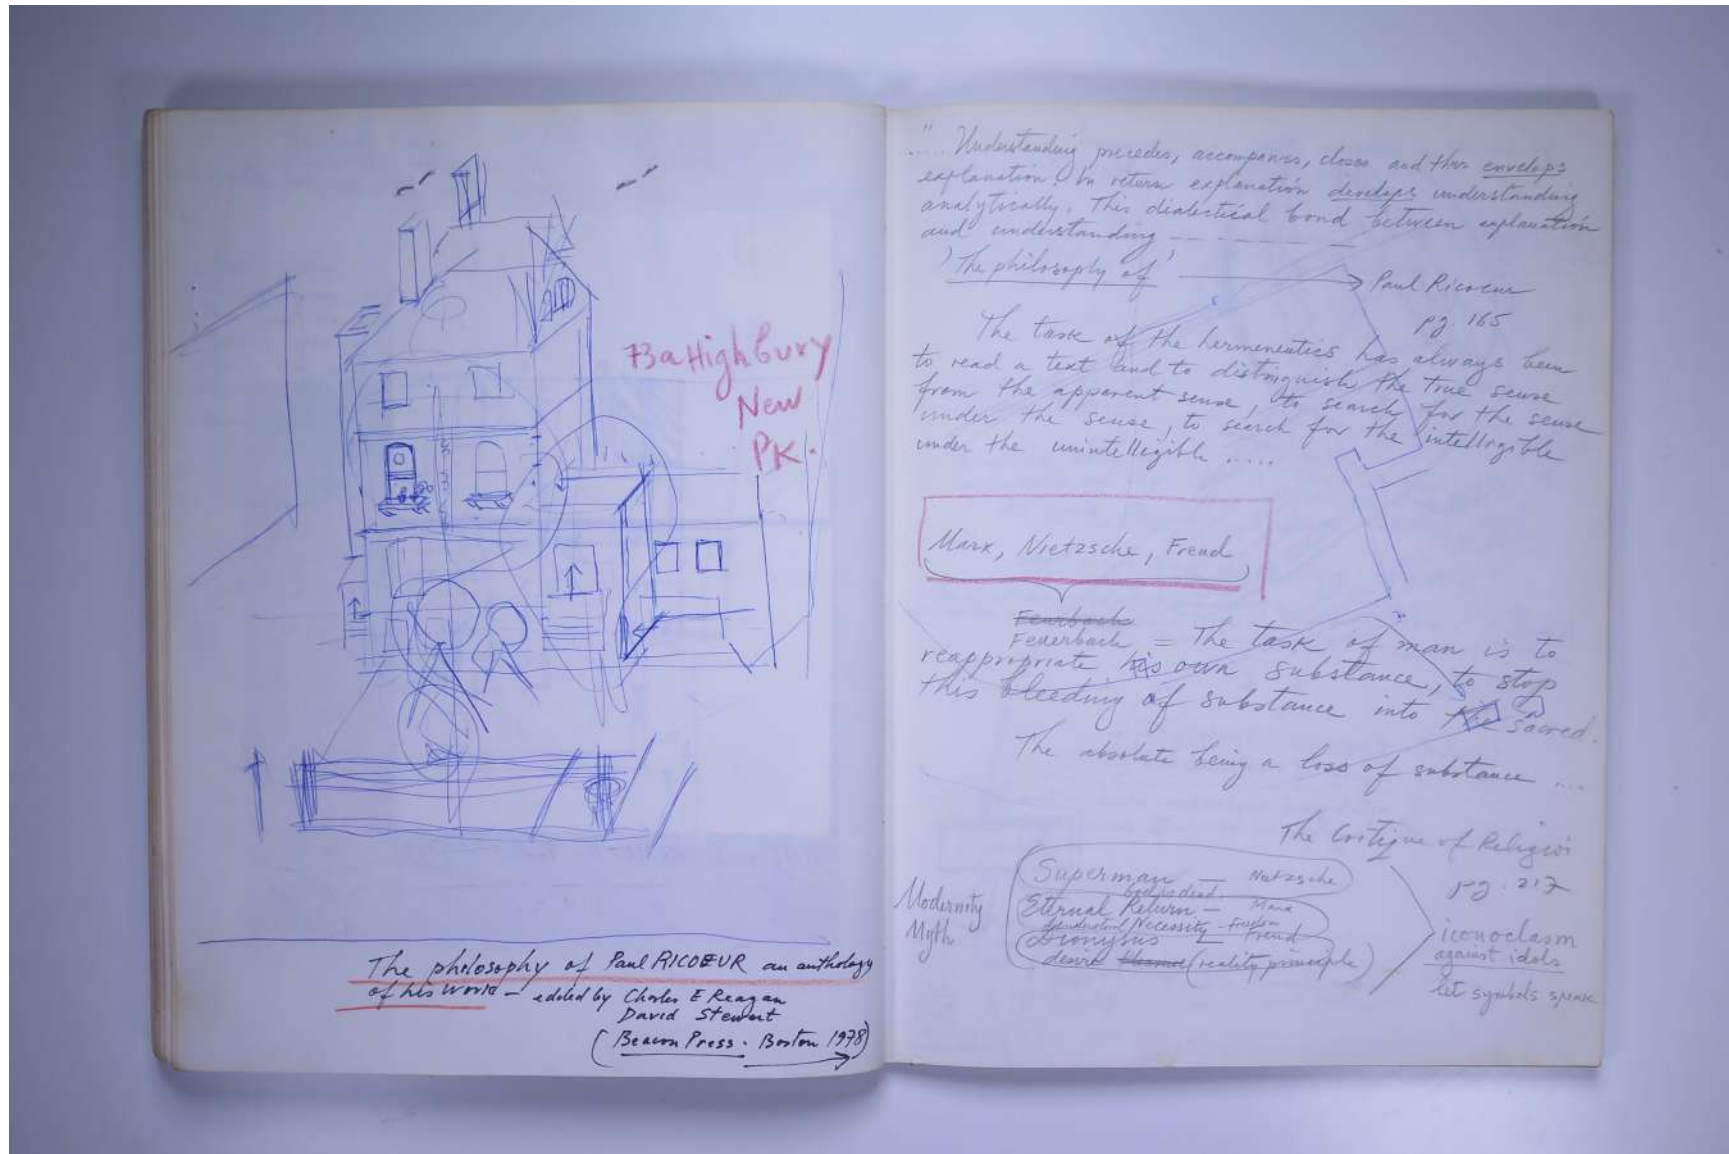 73a Highbury
New
PK.
The philosophy of Paul RICOEUR an anthology
of his work - edited by Charles E Reagan
David Stewart
(Beacon Press. Boston 1978)
"..... Understanding precedes, accompanies, closes and thus envelops
explanation. In return explanation develops understanding
analytically. This dialectical bond between explanation
and understanding - - - - -
'The philosophy of' → Paul Ricoeur
pg. 165
The task of the hermeneutics has always been
to read a text and to distinguish the true sense
from the apparent sense, to search for the sense
under the sense, to search for the intelligible
under the unintelligible .....
Marx, Nietzsche, Freud
Feuerbach
Feuerbach = The task of man is to
reappropriate his own substance, to stop
this bleeding of substance into the sacred.
The absolute being a loss of substance ....
The Critique of Religion
pg. 217
Modernity
Myth
Superman — Nietzsche
God is dead
Eternal Return — Marx
Necessity - Freedom
Dionysus — Freud
desire (reality principle)
iconoclasm
against idols
let symbols speak